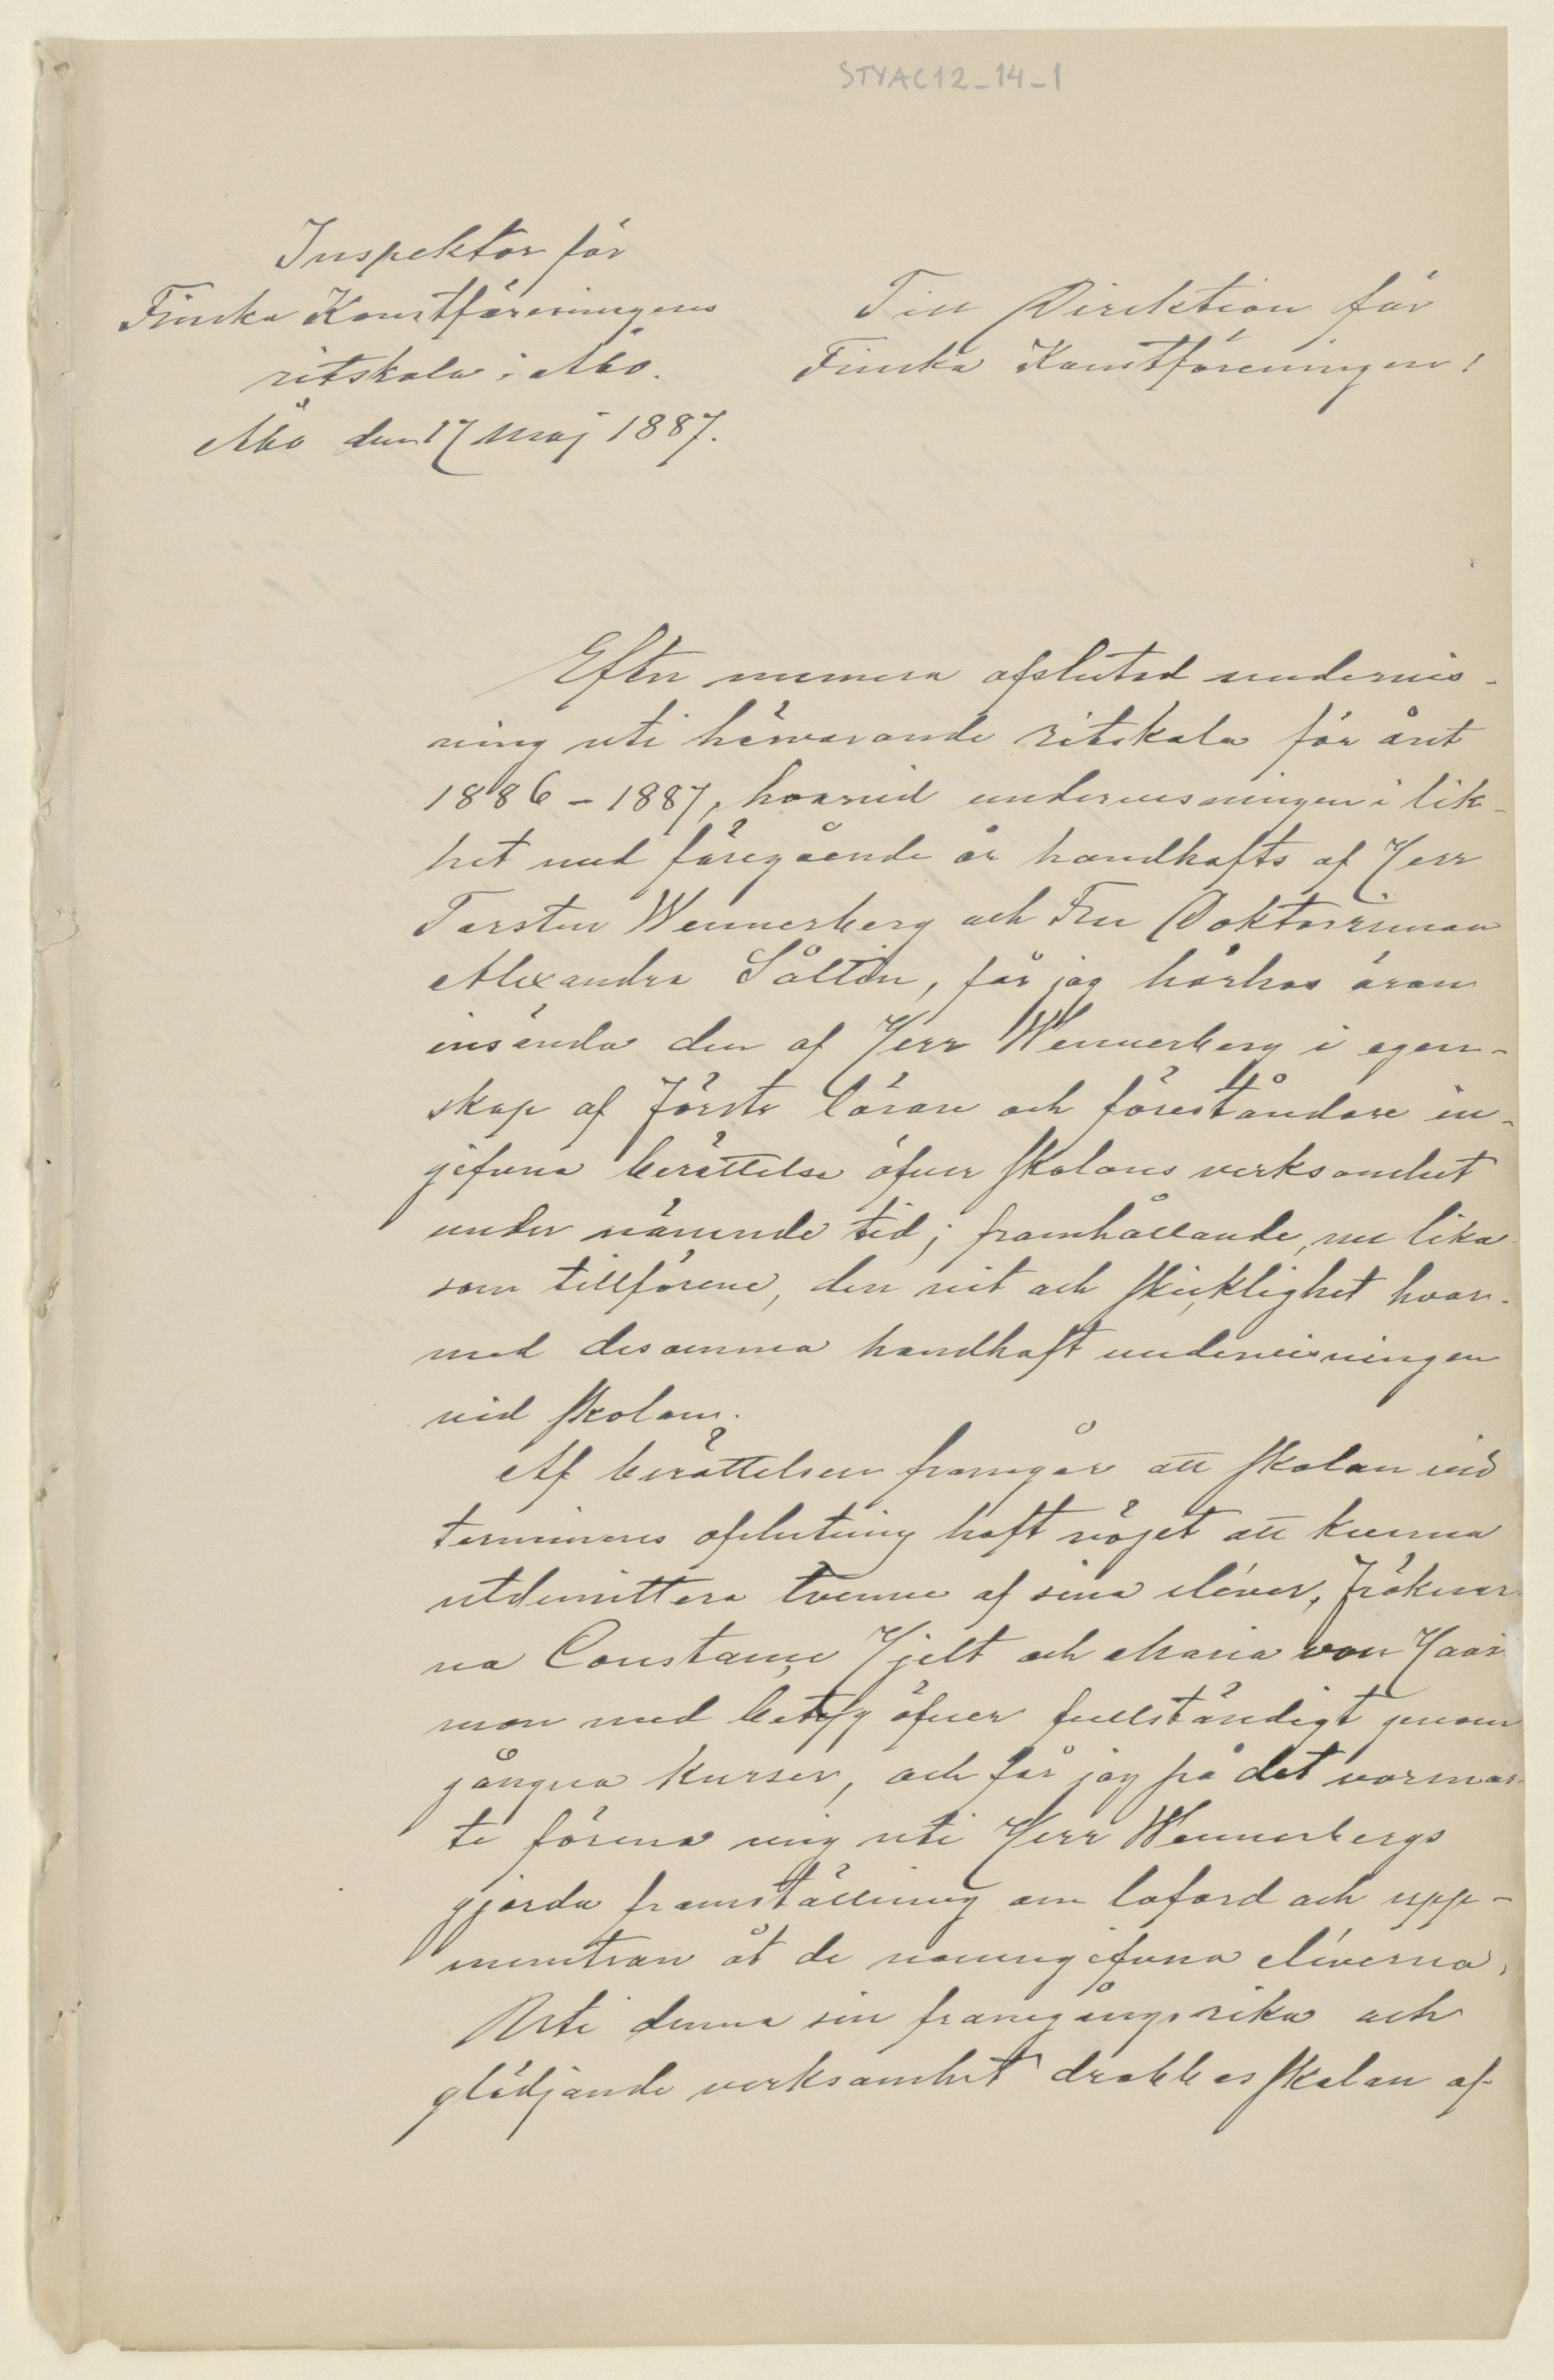 STYAC12_14_1
Inspektor för
Finska Konstföreningens
ritskola i Åbo.
Åbo den 17 Maj 1887.
Till Direktion för
Finska Konstföreningen!
Efter numera afslutad undervis-
ning uti härvarande ritskola för året
1886-1887, hvarvid undervisningen i lik-
het med föregående år handhafts af Herr
Torsten Wennerberg och Fru Doktorinnan
Alexandra Såltin, får jag härhos äran
insända den af Herr Wennerberg i egen-
skap af förste lärare och föreståndare in-
gifvna berättelse öfver skolans verksamhet
under närvnde tid; framhållande, nu lika
som tillförene, den nit och skicklighet hvar-
med desamma handhaft undervisningen
vid skolan.
Af berättelsen framgår att skolan vid
terminens afslutning haft nöjet att kunna
utdimittera tvenne af sina elever, Fröknar
na Constance Hjelt och Maria von Haar
man med betyg öfver fullständigt genom
gångna kurser, och får jag på det varmas
te förena mig uti Herr Wennerbergs
gjorda framställning om loford och upp-
muntran åt de namngifvna eleverna.
Uti denna sin framgångsrika och
glädjande verksamhet drabbas skolan af